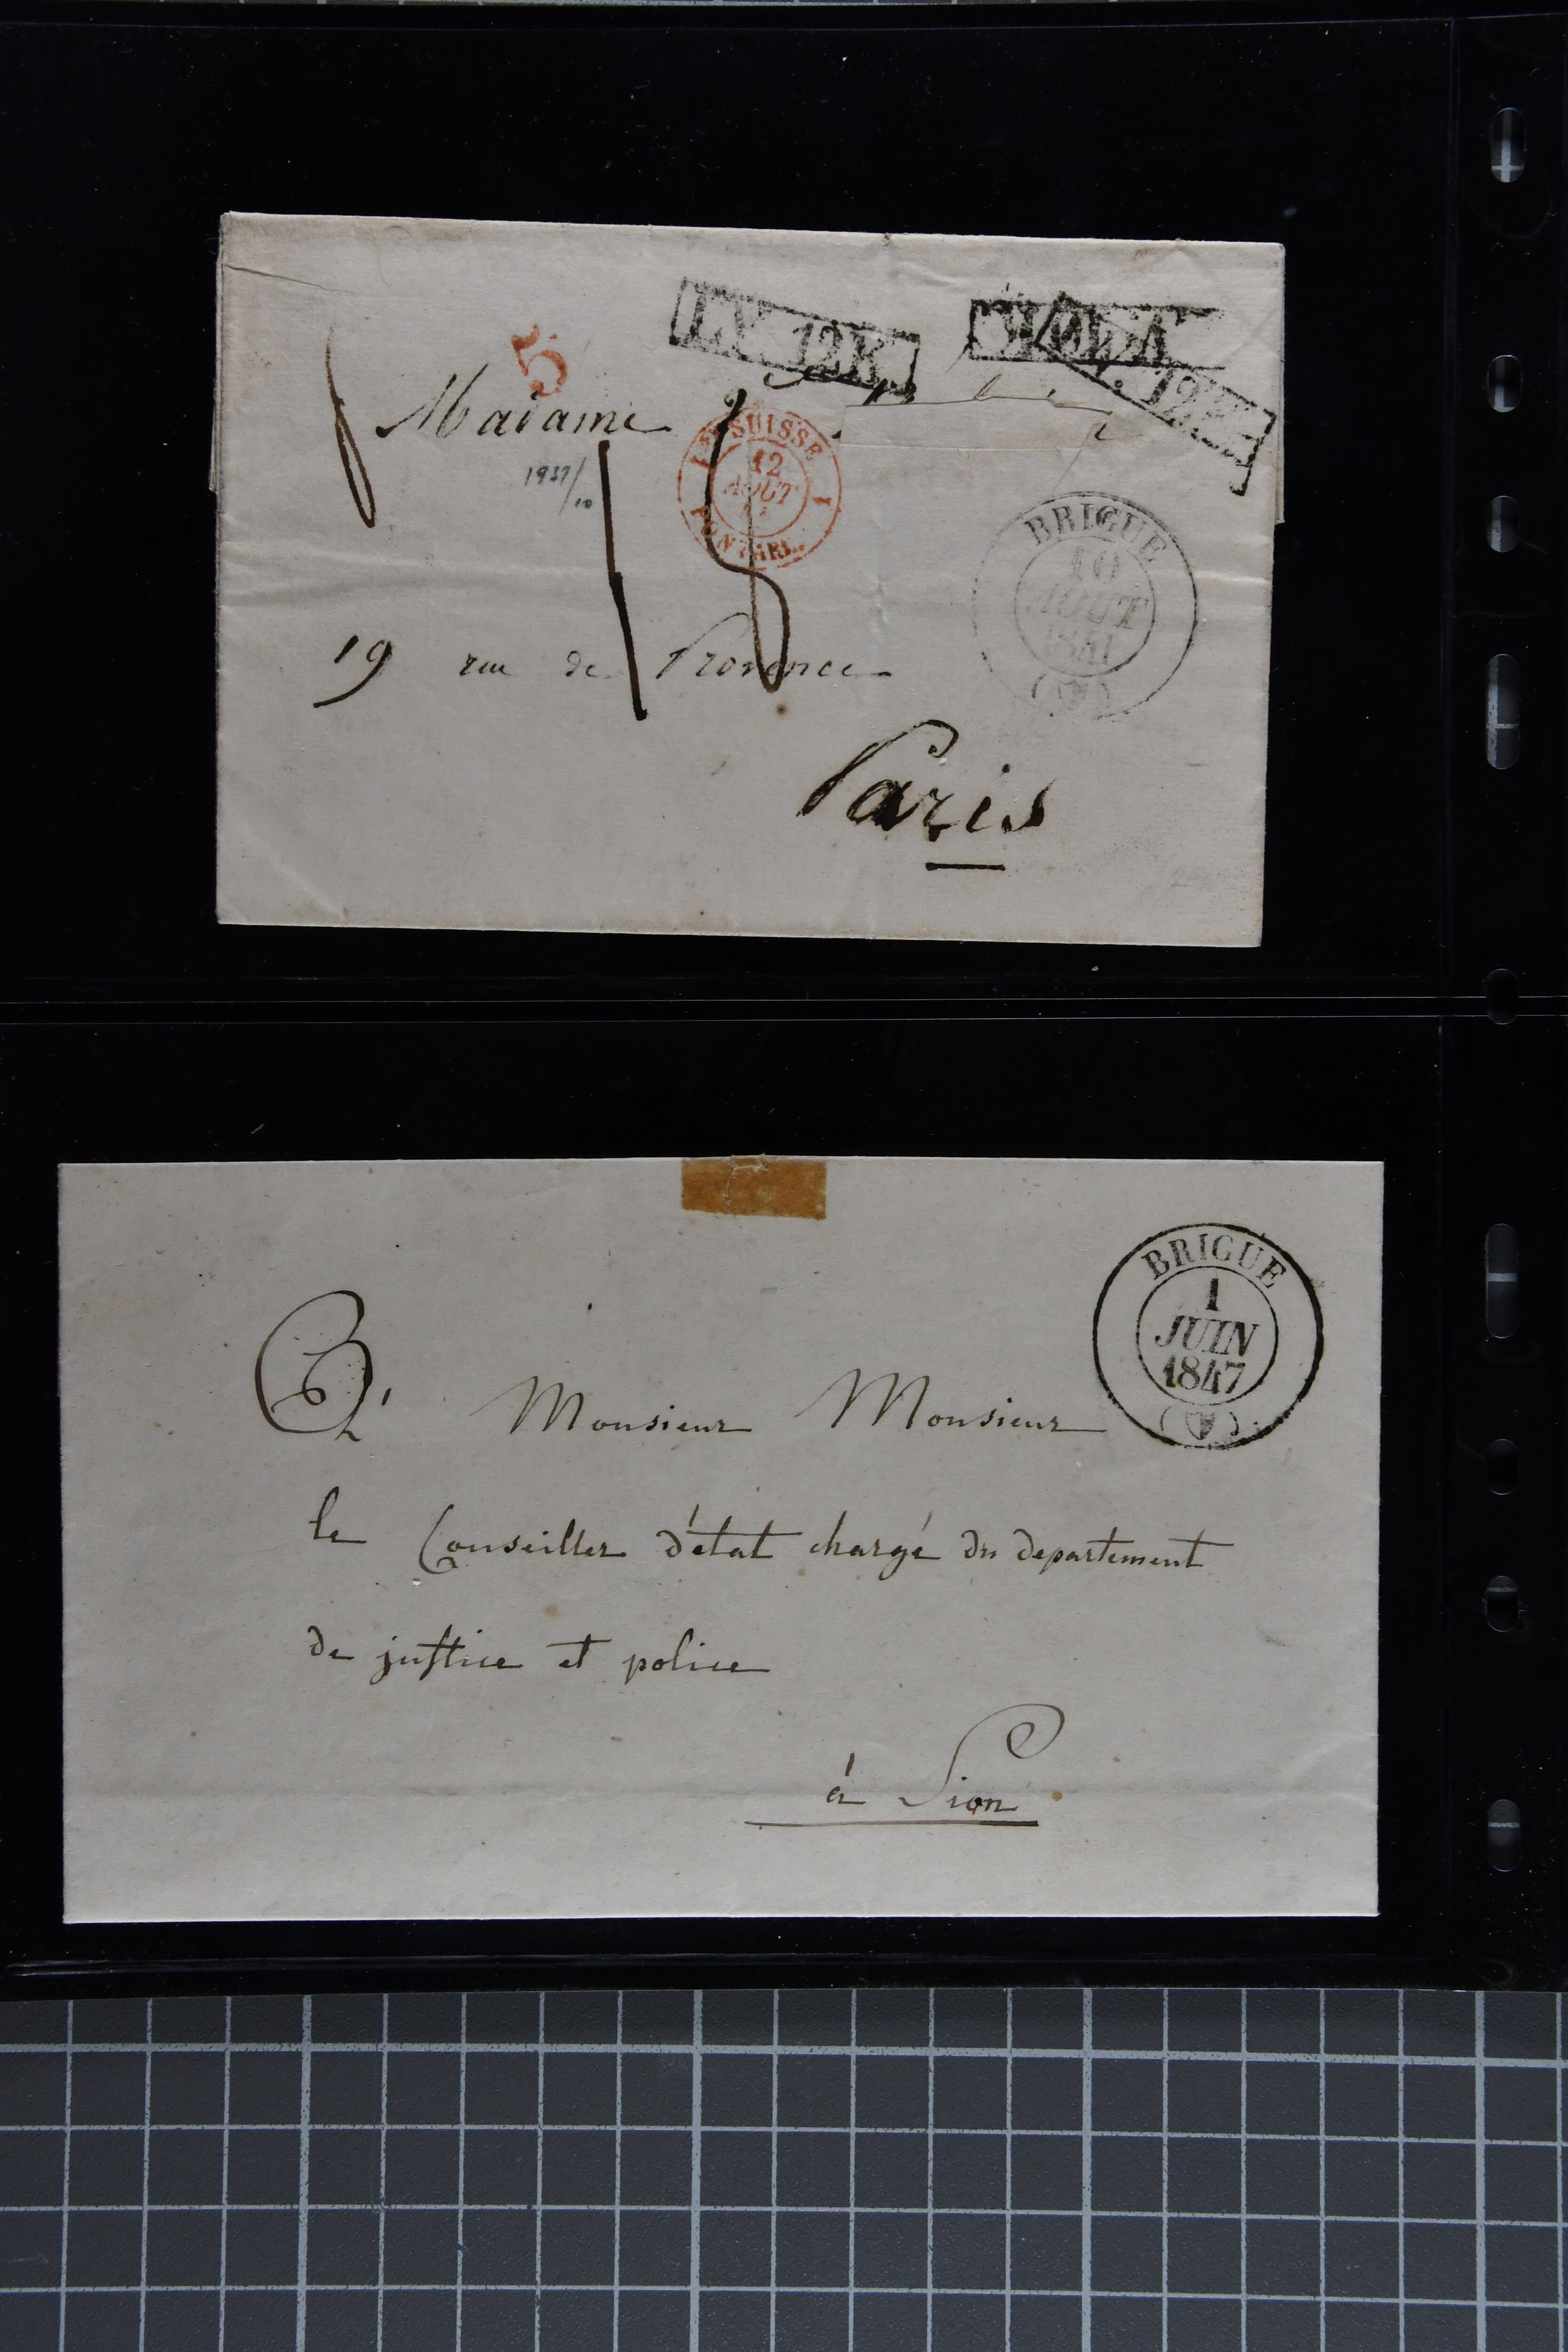 5
L.V. 12K.
L.V. 12K.
Madame
SUISSE
12
AOUT
PONTARL.
1937/10
15
BRIGUE
10
AOUT
1841
19 rue de Provence
Paris
BRIGUE
1
JUIN
1847
A Monsieur Monsieur
le Conseiller d'état chargé du departement
de justice et police
à Sion